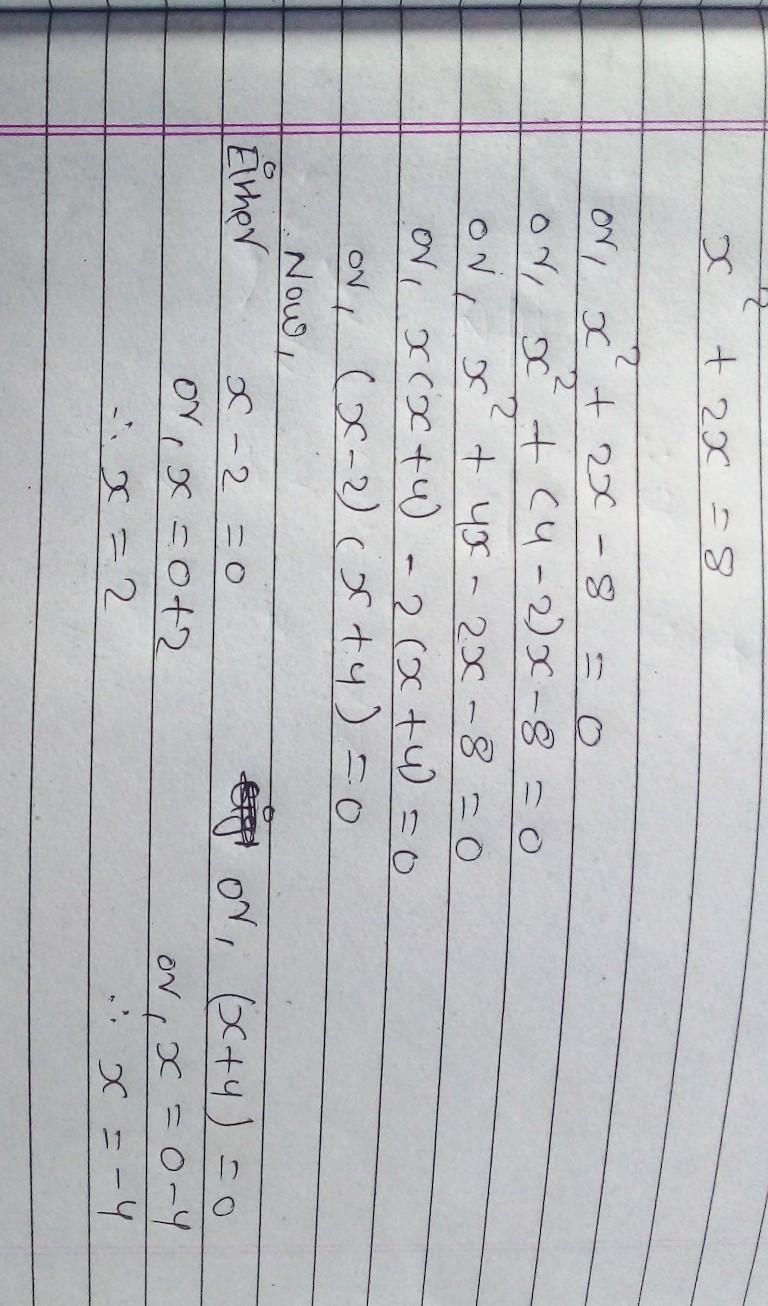 x² + 2x = 8
or, x² + 2x - 8 = 0
or, x² + (4 - 2)x - 8 = 0
or, x² + 4x - 2x - 8 = 0
or, x(x + 4) - 2(x + 4) = 0
or, (x - 2)(x + 4) = 0
Now,
Either x - 2 = 0 or, (x + 4) = 0
or, x = 0 + 2 or, x = 0 - 4
∴ x = 2 ∴ x = -4